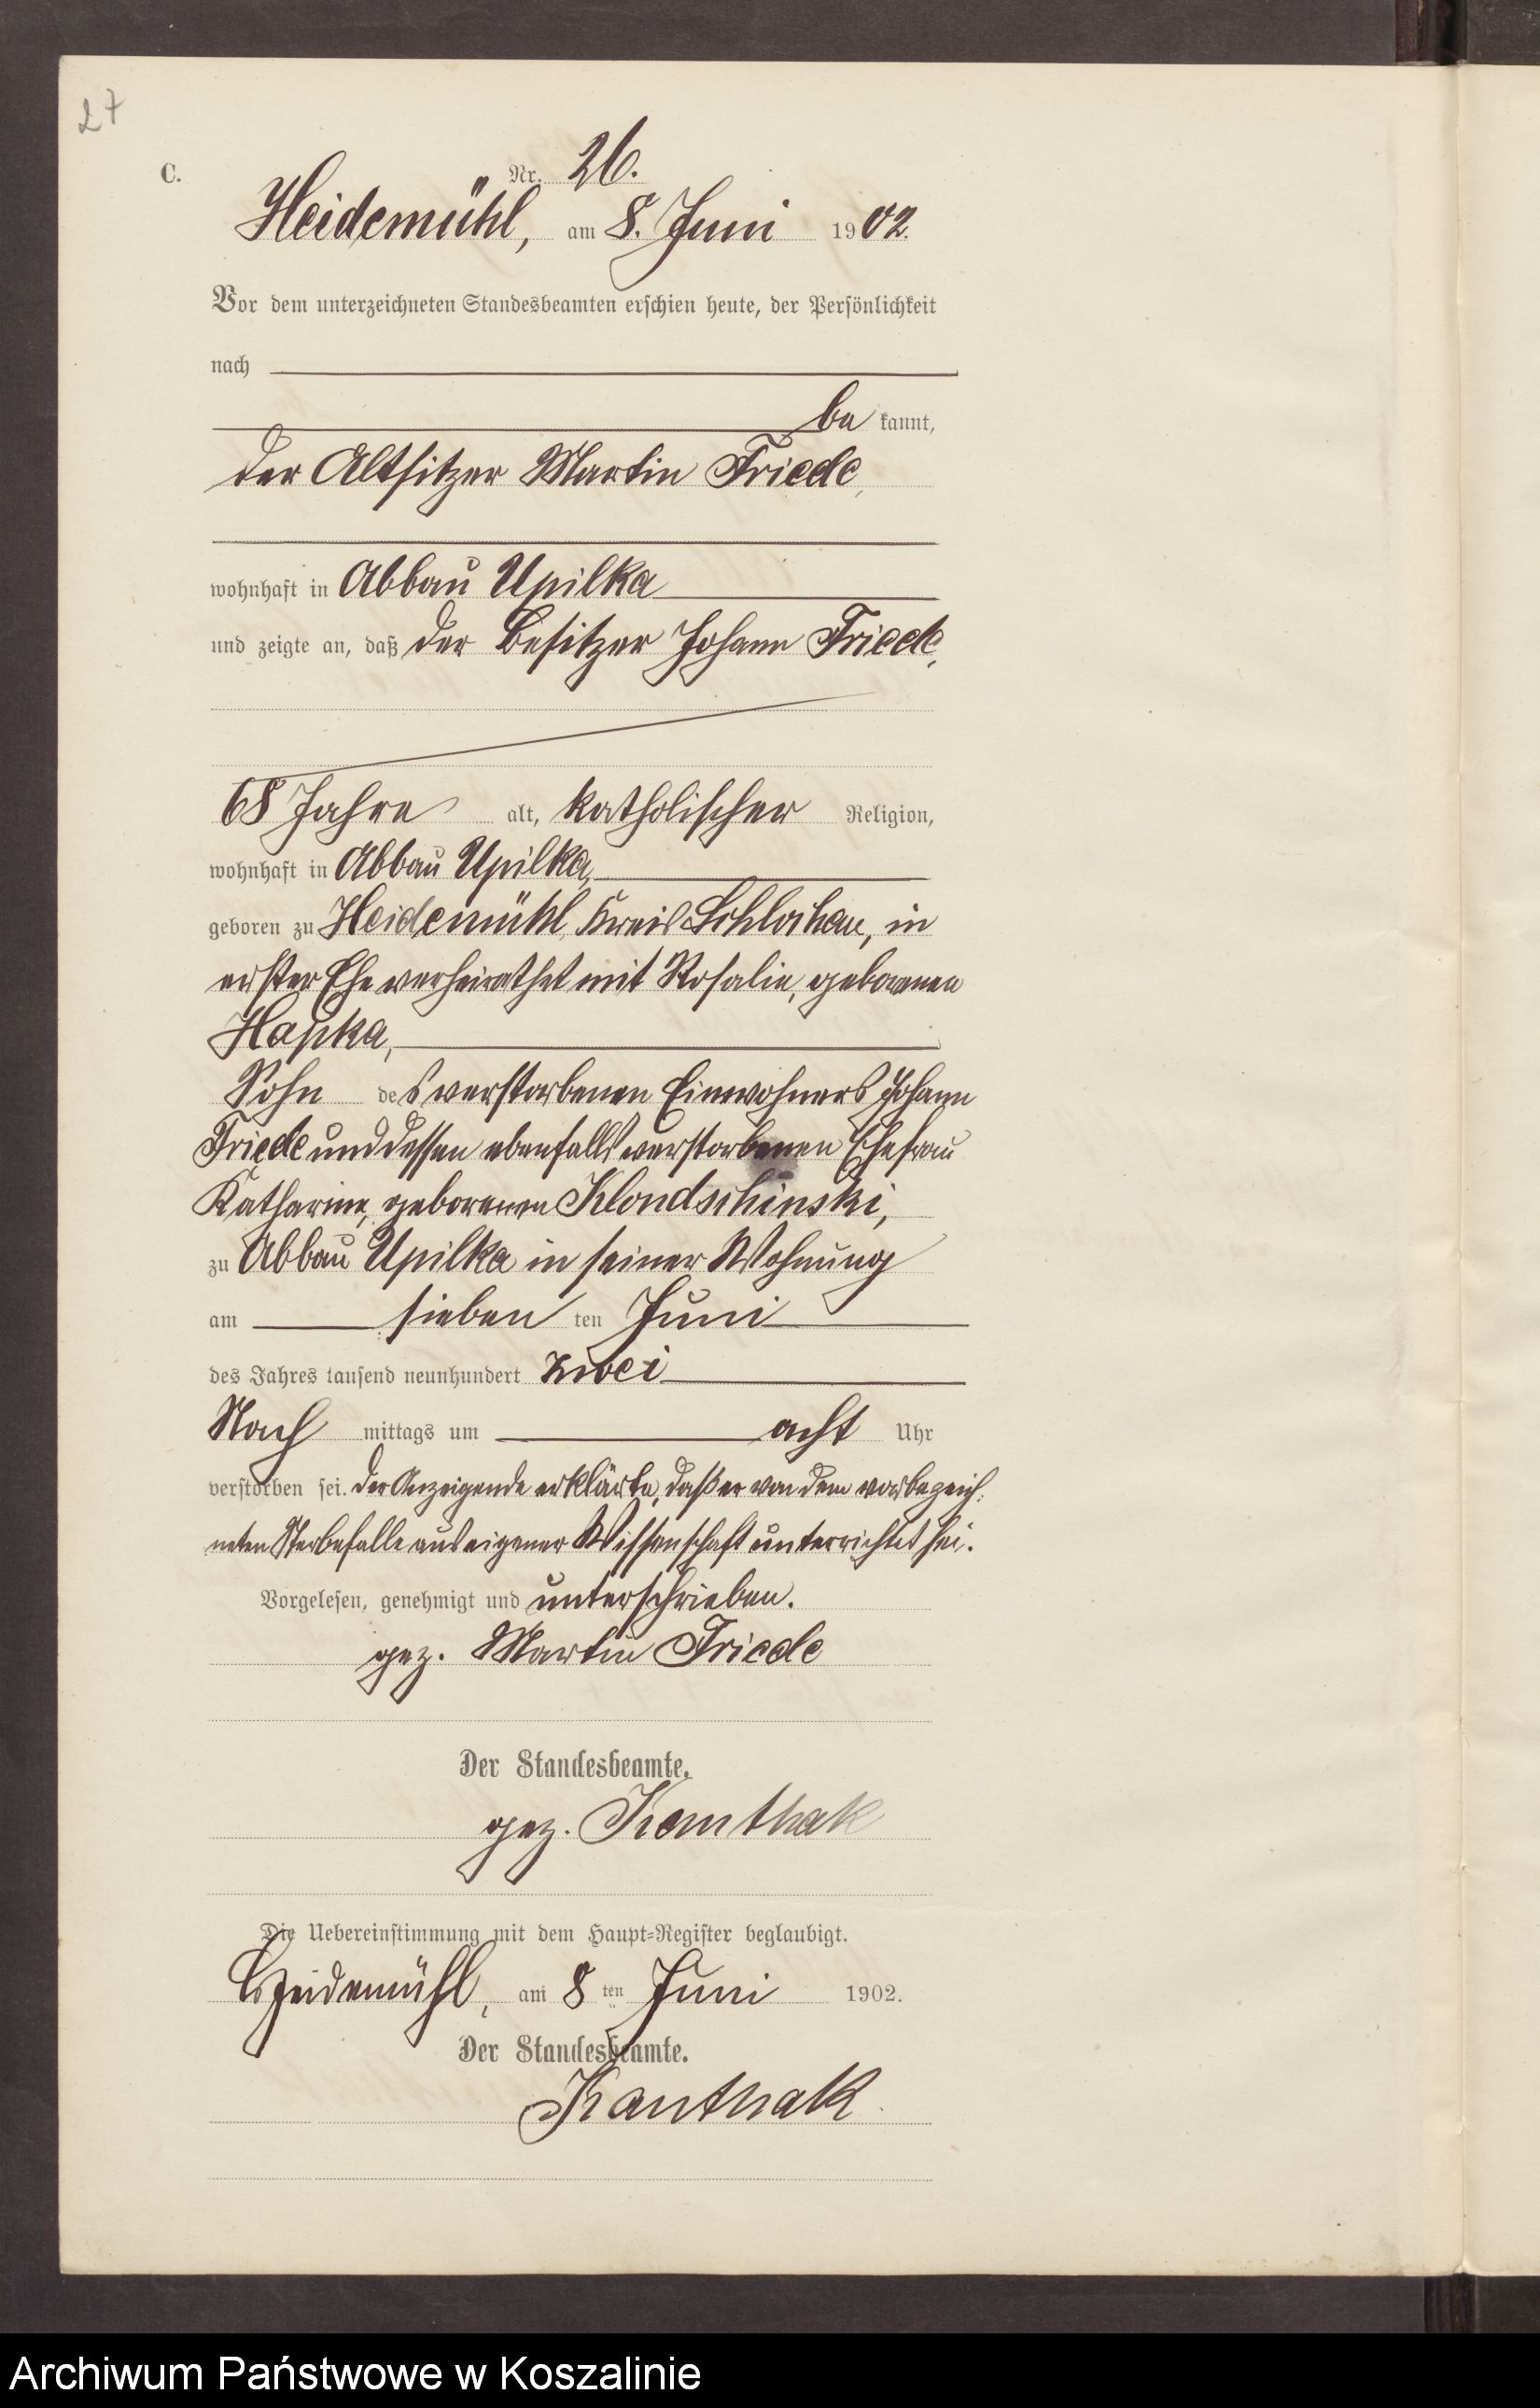 27
C.
Nr. 26.
Heidemühl, am 8. Juni 1902.
Vor dem unterzeichneten Standesbeamten erschien heute, der Persönlichkeit
nach
be kannt,
der Altsitzer Martin Friede,
wohnhaft in Abbau Upilka
und zeigte an, daß der Besitzer Johann Friede,
68 Jahre alt, katholischer Religion,
wohnhaft in Abbau Upilka,
geboren zu Heidemühl, Kreis Schlochau, in
erster Ehe verheirathet mit Rosalie, geborenen
Hapka,
Sohn des verstorbenen Einwohners Johann
Friede und dessen ebenfalls verstorbenen Ehefrau
Katharina, geborenen Klondschinski,
zu Abbau Upilka in seiner Wohnung
am sieben ten Juni
des Jahres tausend neunhundert zwei
Nach mittags um acht Uhr
verstorben sei. Der Anzeigende erklärte, daß er von dem vorbezeich-
neten Sterbefalle aus eigener Wissenschaft unterrichtet sei.
Vorgelesen, genehmigt und unterschrieben.
gez. Martin Friede
Der Standesbeamte.
gez. Kanthak
Die Uebereinstimmung mit dem Haupt-Register beglaubigt.
Heidemühl, am 8 ten Juni 1902.
Der Standesbeamte.
Kanthak
Archiwum Państwowe w Koszalinie